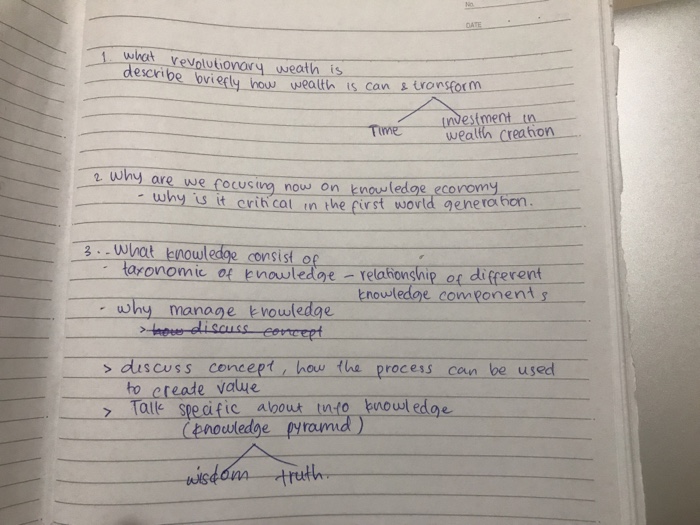 No.
DATE
1 what revolutionary weath is
describe briefly how wealth is can & transform
Time
investment in
wealth creation
2 Why are we focusing now on knowledge economy
- why is it critical in the first world generation.
3. - What knowledge consist of
- taxonomic of knowledge - relationship of different
knowledge components
- why manage knowledge
> how discuss concept
> discuss concept, how the process can be used
to create value
> Talk specific about info knowledge
(knowledge pyramid)
wisdom truth.